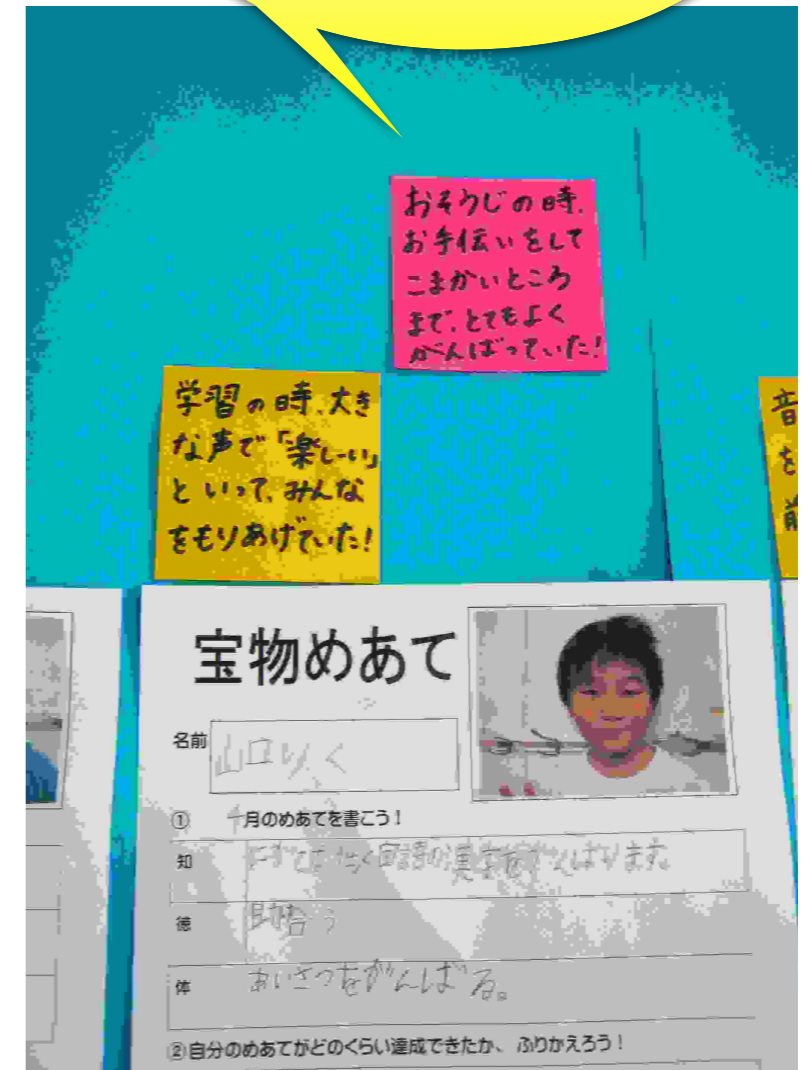 おそうじの時、
お手伝いをして
こまかいところ
まで、とてもよく
がんばっていた!
学習の時、大き
な声で「楽しーい」
といって、みんな
をもりあげていた!
音
を
前
宝物めあて
名前 山口りく
① 月のめあてを書こう!
知 国語の漢字をがんばります。
徳 助合う
体 あいさつをがんばる。
②自分のめあてがどのくらい達成できたか、ふりかえろう!